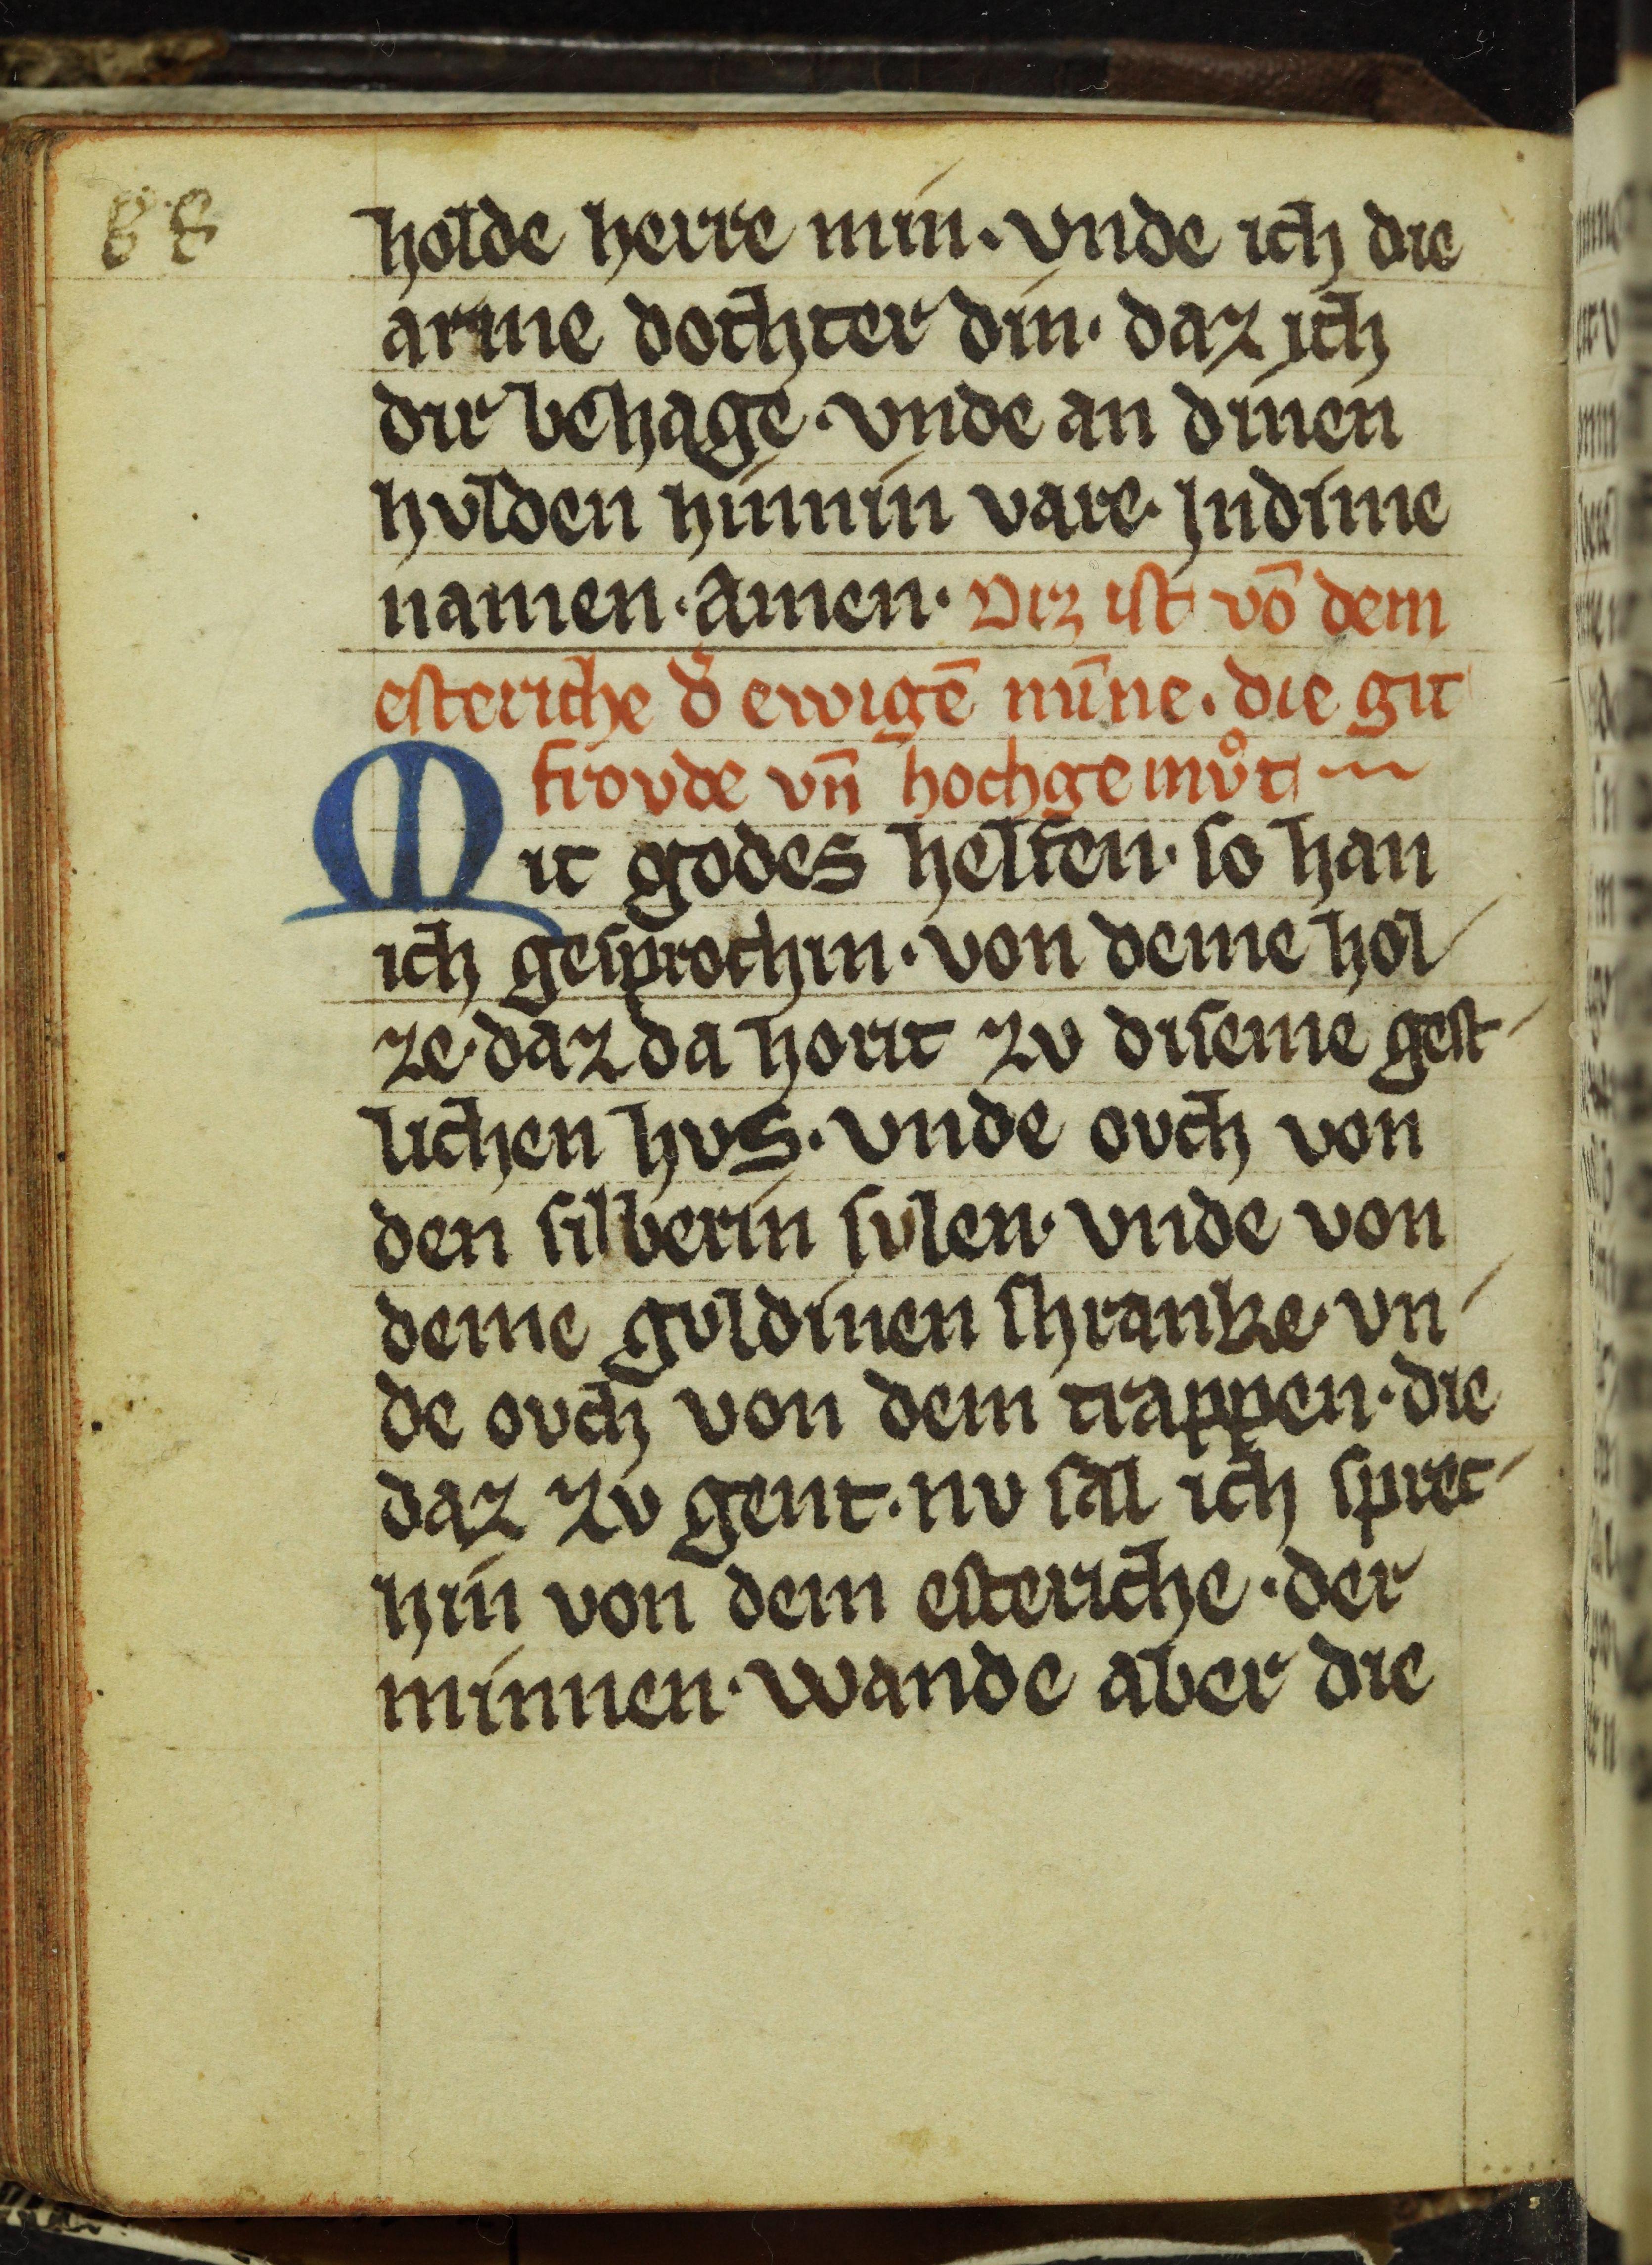 88
holde herre min. vnde ich die
arme dochter din. daz ich
dir behage. vnde an dinen
hvlden hinnin vare. Jndime
namen. Amen. Diz ist võ dem
esteriche d̕ ewigẽ mīne. die git
frovde vn̄ hochgemvͦt
Mit godes helfen. so han
ich gesprochin. von deme hol
ze. daz da horit zv diseme gest
lichen hvs. vnde ovch von
den silberin svlen. vnde von
deme gvldinen shranke. vn
de ovch von dem trappen. die
daz zv gent. nv sal ich sprec
hin von dem esteriche. der
minnen. wande aber die